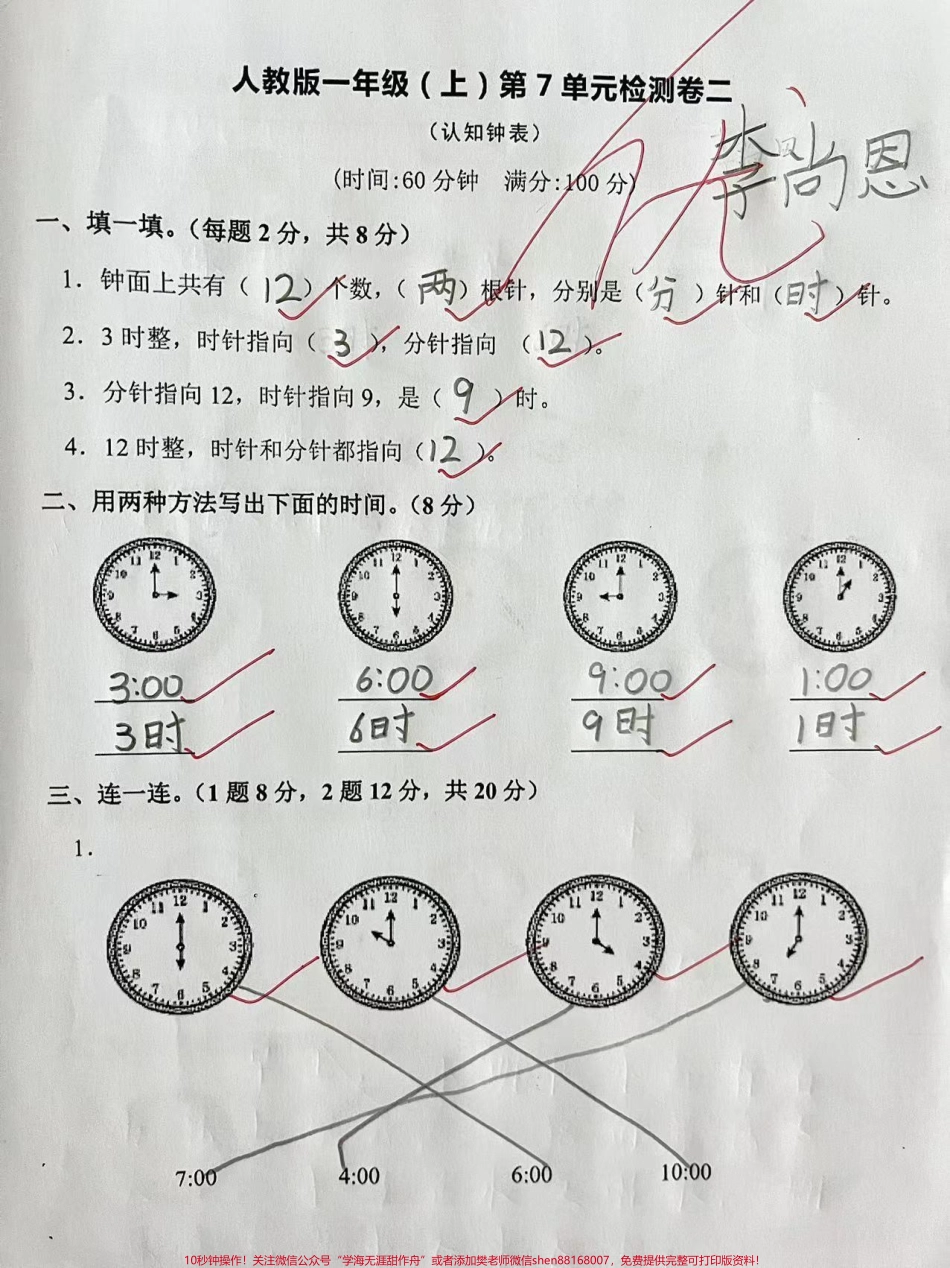 人教版一年级（上）第7单元检测卷二
（认知钟表）
(时间:60分钟 满分:100分)
李尚恩
一、填一填。（每题2分，共8分）
1. 钟面上共有（12）个数，（两）根针，分别是（分）针和（时）针。
2. 3时整，时针指向（3），分针指向（12）。
3. 分针指向12，时针指向9，是（9）时。
4. 12时整，时针和分针都指向（12）。
二、用两种方法写出下面的时间。（8分）
3:00 6:00 9:00 1:00
3时 6时 9时 1时
三、连一连。（1题8分，2题12分，共20分）
1.
7:00 4:00 6:00 10:00
10秒钟操作！关注微信公众号“学海无涯甜作舟”或者添加樊老师微信shen88168007，免费提供完整可打印版资料！